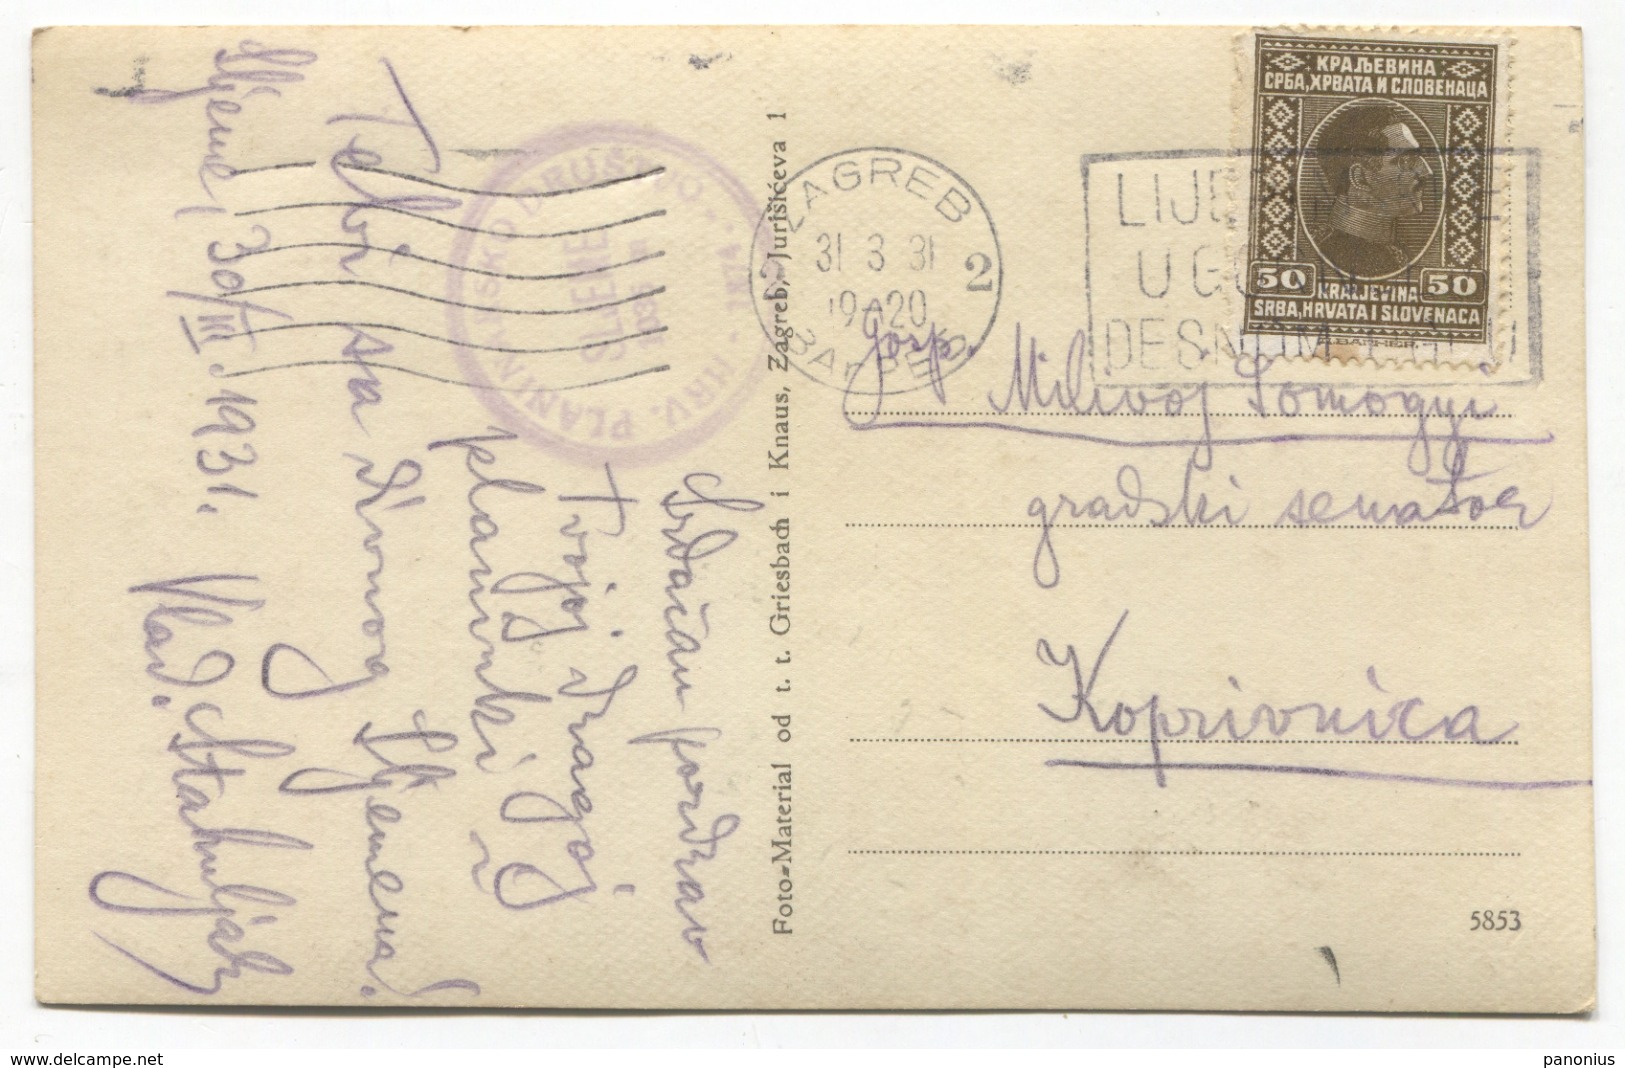 Sljeme, 30/III. 1931.
Srdačan pozdrav
Tvojoj dragoj
planinki i
Tebi sa divnog Sljemena!
Vlad.
HRV. PLANINARSKO DRUŠTVO · 1874 ·
SLJEME
Foto-Material od t. t. Griesbach i Knaus, Zagreb, Jurišićeva 1
ZAGREB 2
31 3 31
19 20
ЗАГРЕБ
LIJE
UGO
DESNOM
КРАЉЕВИНА
СРБА, ХРВАТА И СЛОВЕНАЦА
50 KRALJEVINA 50
SRBA, HRVATA I SLOVENACA
Gosp.
Milivoj Somogyi
gradski senator
Koprivnica
5853
www.delcampe.net
panonius